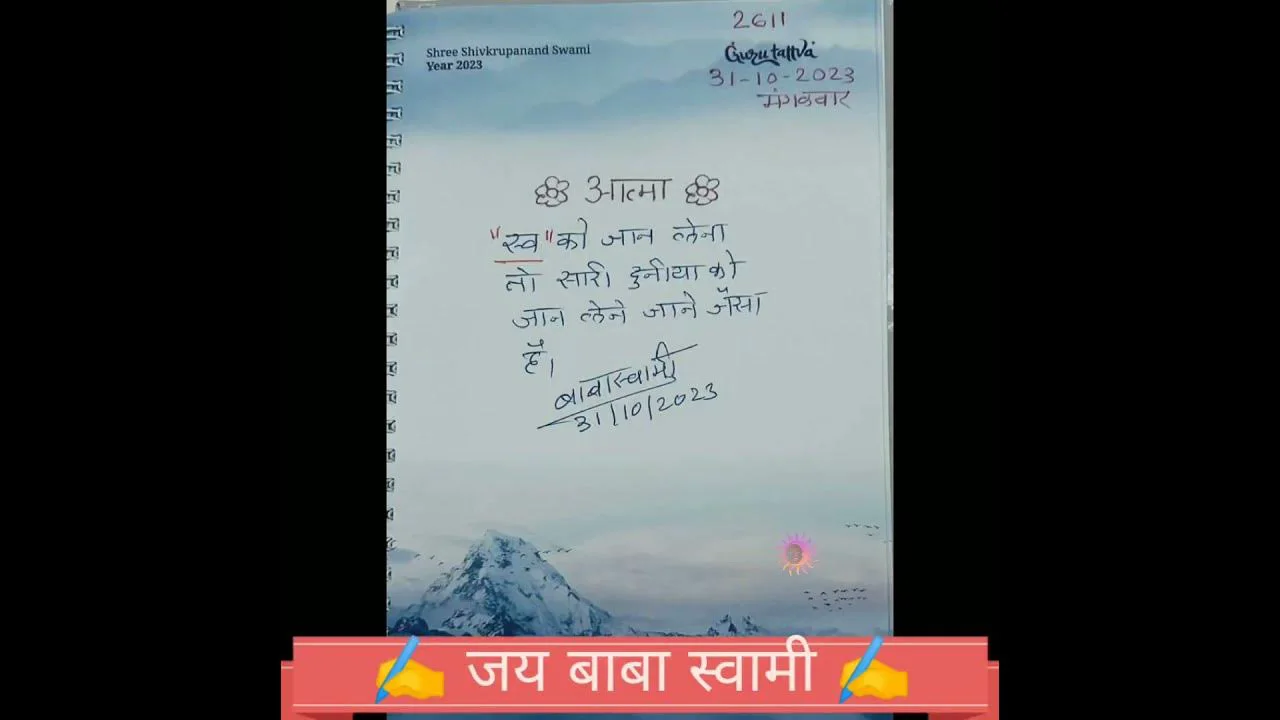 2611
Shree Shivkrupanand Swami
Year 2023
Gurutattva
31-10-2023
मंगळवार
आत्मा
"स्व" को जान लेना
तो सारी दुनीया को
जान लेने जाने जैसा
है।
बाबास्वामी
31/10/2023
✍️ जय बाबा स्वामी ✍️